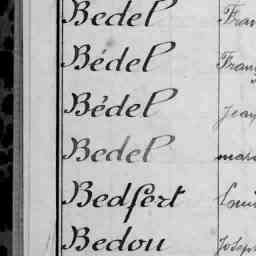 Bedel Fran
Bédel Franç
Bédel Jean
Bedel mar
Bedfert Loui
Bedou Josep